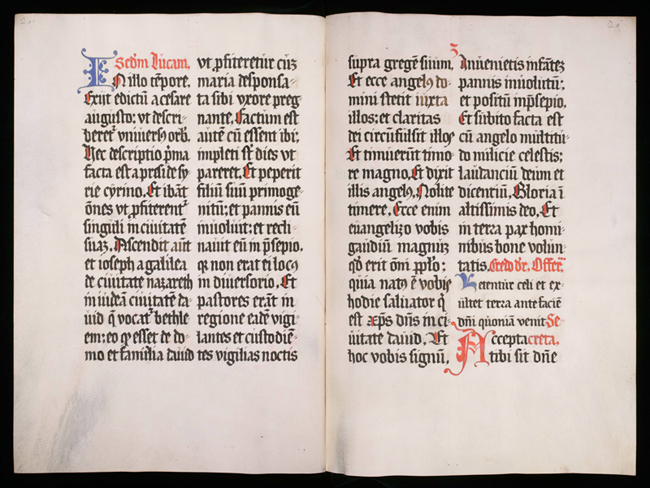 Secdm Lucam.
In illo tempore.
Exijt edictũ a cesare
augusto: vt descri-
beretʳ vniuersꝰ orb.
Hec descriptio p̃ma
facta est a preside sy
rie cyrino. Et ibãt
õnes vt ꝓfiterentʳ
singuli in ciuitatẽ
suaʒ. Ascendit aũt
et ioseph a galilea
de ciuitate nazareth
in iudeã ciuitatẽ da
uid q̃ vocatʳ bethle
em: eo ꝙ esset de do-
mo et familia dauid
vt ꝓfiteretur cũʒ
maria desponsa-
ta sibi vxore preg
nante. Factum est
autẽ cũ essent ibi:
impleti sũt dies vt
pareret. Et peperit
filiũ suũ primoge
nitũ: et pannis eũ
inuoluit: et recli-
nauit eũ in p̃sepio.
qꝛ non erat ei locꝰ
in diuersorio. Et
pastores erãt in
regione eadẽ vigi
lantes et custodiẽ-
tes vigilias noctis
supra gregẽ suum.
Et ecce angelꝰ do-
mini stetit iuxta
illos: et claritas
dei circũfulsit illos
Et timuerũt timo-
re magno. Et dixit
illis angelꝰ. Nolite
timere. Ecce enim
euangelizo vobis
gaudiũ magnuʒ
qd̃ erit õni ꝓplo:
quia natꝰ ẽ vobis
hodie saluator q̃
est xp̃s dñs in ci-
uitate dauid. Et
hoc vobis signũ.
Inuenietis infãteʒ
pannis inuolutũ:
et positũ in p̃sepio.
Et subito facta est
cũ angelo multitu-
do milicie celestis:
laudanciũ deum et
dicentiũ. Gloria ĩ
altissimis deo. Et
in terra pax homi-
nibus bone volun-
tatis. Credo dr̃. Offer.
Letentur celi et ex-
ultet terra ante faciẽ
dñi quoniã venit Se-
Accepta creta.
tibi sit dñe